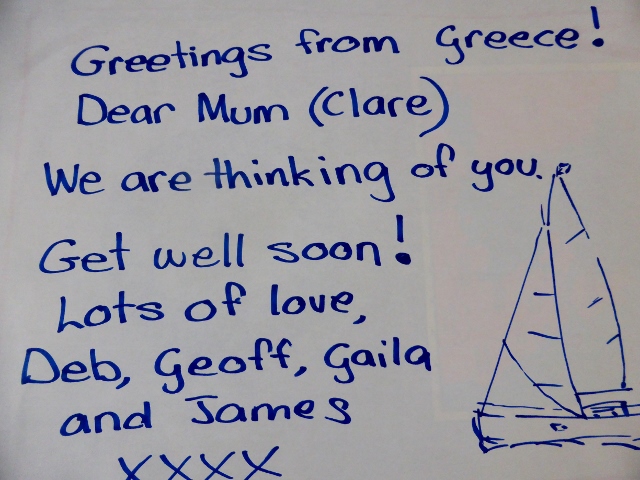 Greetings from Greece!
Dear Mum (Clare)
We are thinking of you.
Get well soon!
Lots of love,
Deb, Geoff, Gaila
and James
XXXX